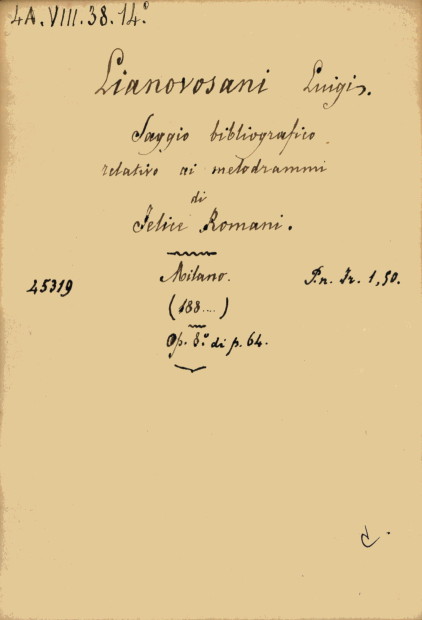 4A.VIII.38.14.°
Lianovosani Luigi.
Saggio bibliografico
relativo ai melodrammi
di
Felice Romani.
45319 Milano. P.n. Fr. 1,50.
(188....)
Op. 8.° di p. 64.